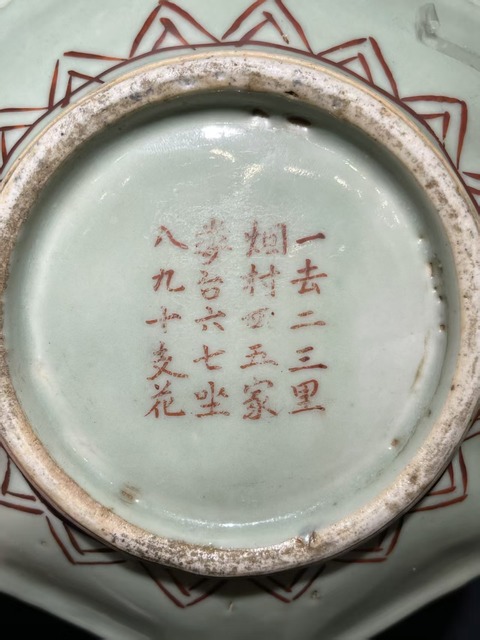 一去二三里
烟村四五家
亭台六七坐
八九十支花